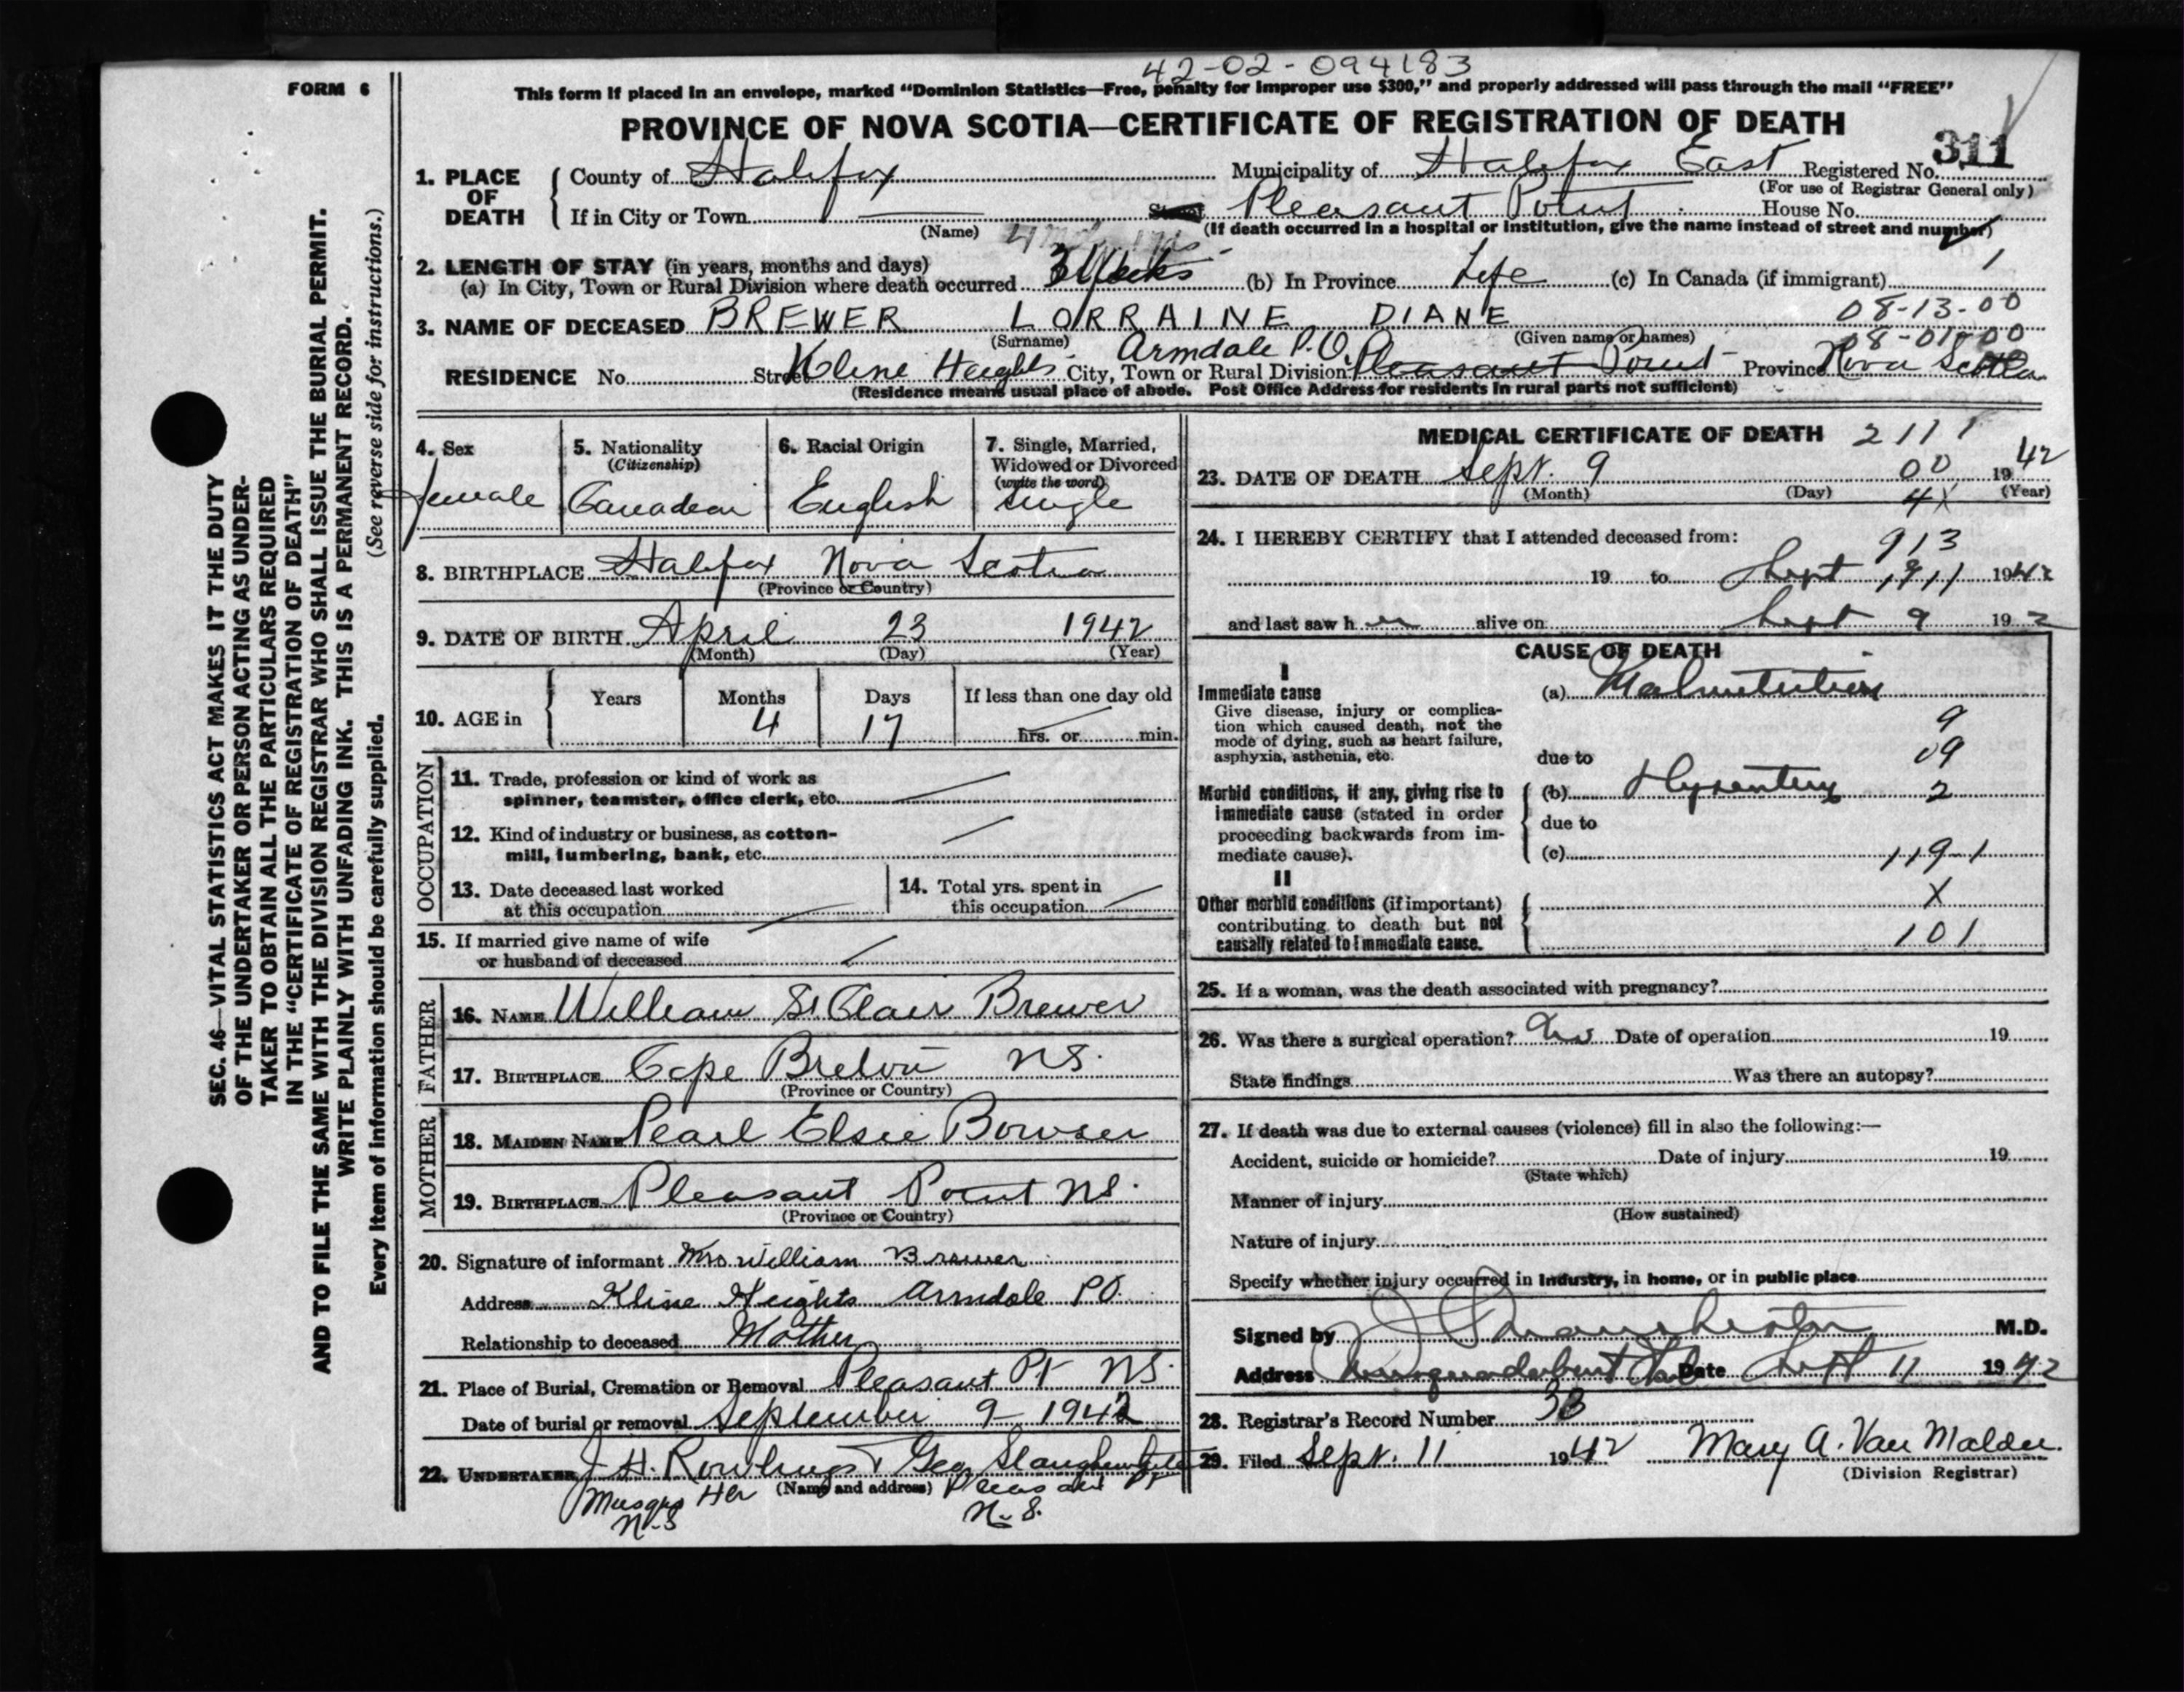 42-02-094183
FORM 6
This form if placed in an envelope, marked "Dominion Statistics—Free, penalty for improper use $300," and properly addressed will pass through the mail "FREE"
PROVINCE OF NOVA SCOTIA—CERTIFICATE OF REGISTRATION OF DEATH
311
1. PLACE OF DEATH
County of Halifax Municipality of Halifax East Registered No.
(For use of Registrar General only)
If in City or Town Street Pleasant Point House No.
(Name) (If death occurred in a hospital or institution, give the name instead of street and number)
2. LENGTH OF STAY (in years, months and days)
(a) In City, Town or Rural Division where death occurred 3 Weeks (b) In Province Life (c) In Canada (if immigrant) 1
3. NAME OF DECEASED BREWER LORRAINE DIANE 08-13-00
(Surname) (Given name or names) 08-01-00
Armdale P.O.
RESIDENCE No. Street Kline Heights City, Town or Rural Division Pleasant Point Province Nova Scotia
(Residence means usual place of abode. Post Office Address for residents in rural parts not sufficient)
4. Sex
female
5. Nationality
(Citizenship)
Canadian
6. Racial Origin
English
7. Single, Married,
Widowed or Divorced
(write the word)
single
8. BIRTHPLACE Halifax Nova Scotia
(Province or Country)
9. DATE OF BIRTH April 23 1942
(Month) (Day) (Year)
10. AGE in
Years Months Days If less than one day old
4 17 hrs. or min.
OCCUPATION
11. Trade, profession or kind of work as
spinner, teamster, office clerk, etc.
12. Kind of industry or business, as cotton-
mill, lumbering, bank, etc.
13. Date deceased last worked
at this occupation
14. Total yrs. spent in
this occupation
15. If married give name of wife
or husband of deceased
FATHER
16. NAME William St Clair Brewer
17. BIRTHPLACE Cape Breton N.S.
(Province or Country)
MOTHER
18. MAIDEN NAME Pearl Elsie Bowser
19. BIRTHPLACE Pleasant Point N.S.
(Province or Country)
20. Signature of informant Mrs William Brewer
Address Kline Heights Armdale P.O.
Relationship to deceased Mother
21. Place of Burial, Cremation or Removal Pleasant Pt N.S.
Date of burial or removal September 9- 1942
22. UNDERTAKER J H. Rowlings + Geo Slaunwhite
(Name and address) Pleasant Pt
N.S N.S.
MEDICAL CERTIFICATE OF DEATH 2111
23. DATE OF DEATH Sept. 9 00 1942
(Month) (Day) (Year)
4X
24. I HEREBY CERTIFY that I attended deceased from:
913
19 to Sept 1942
and last saw h er alive on Sept 9 1942
CAUSE OF DEATH
I
Immediate cause
Give disease, injury or complica-
tion which caused death, not the
mode of dying, such as heart failure,
asphyxia, asthenia, etc.
(a) Malnutrition
9
due to 09
Morbid conditions, if any, giving rise to
immediate cause (stated in order
proceeding backwards from im-
mediate cause).
(b) Dysentery 2
due to
(c) 119-1
II
Other morbid conditions (if important)
contributing to death but not
causally related to immediate cause.
X
101
25. If a woman, was the death associated with pregnancy?
26. Was there a surgical operation? No Date of operation 19
State findings Was there an autopsy?
27. If death was due to external causes (violence) fill in also the following:—
Accident, suicide or homicide? Date of injury 19
(State which)
Manner of injury
(How sustained)
Nature of injury
Specify whether injury occurred in industry, in home, or in public place
Signed by M.D.
Address Musquodoboit Hbr Date Sept 11 1942
28. Registrar's Record Number 38
29. Filed Sept. 11 1942 Mary A. Van Malder
(Division Registrar)
SEC. 46—VITAL STATISTICS ACT MAKES IT THE DUTY
OF THE UNDERTAKER OR PERSON ACTING AS UNDER-
TAKER TO OBTAIN ALL THE PARTICULARS REQUIRED
IN THE "CERTIFICATE OF REGISTRATION OF DEATH"
AND TO FILE THE SAME WITH THE DIVISION REGISTRAR WHO SHALL ISSUE THE BURIAL PERMIT.
WRITE PLAINLY WITH UNFADING INK. THIS IS A PERMANENT RECORD.
Every item of information should be carefully supplied. (See reverse side for instructions.)